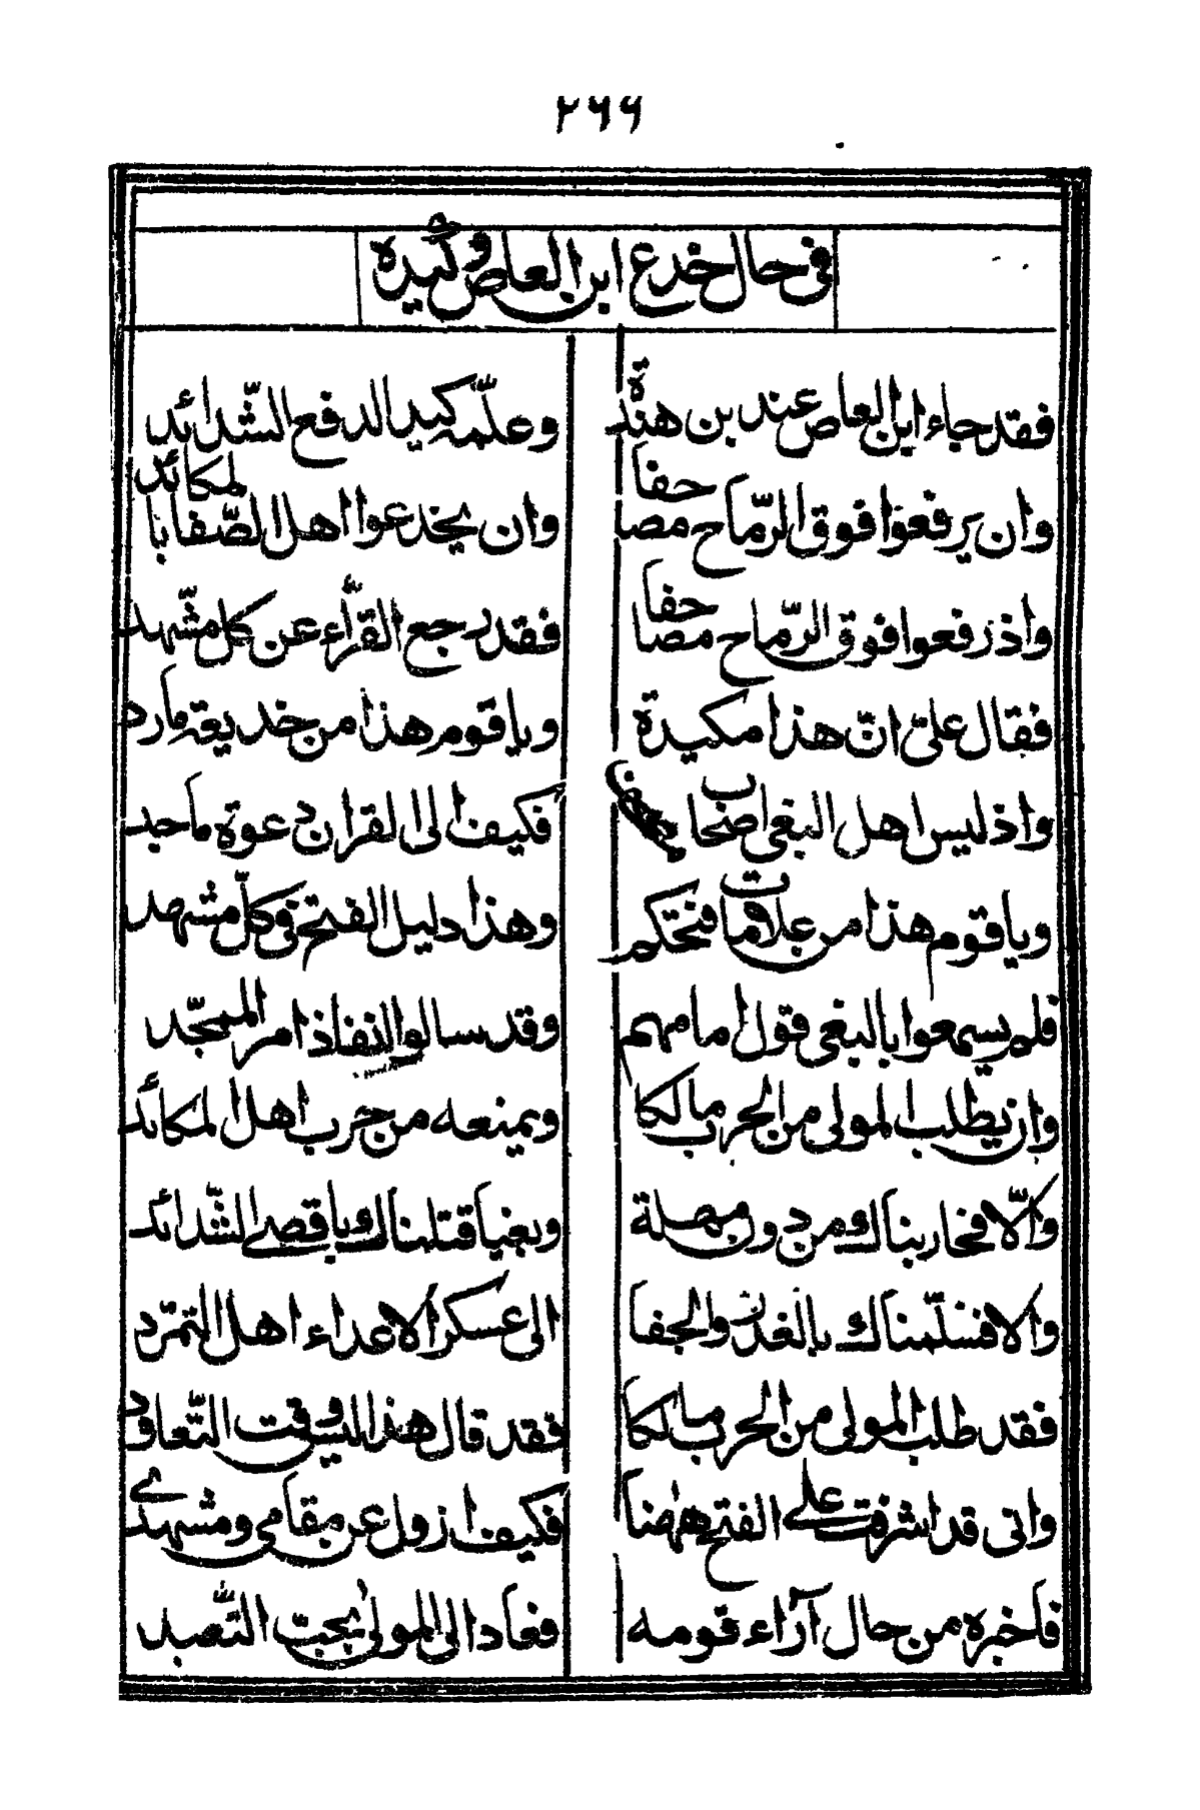 ٢٦٦
في حال خدع ابن العاص وكيده
فقد جاء ابن العاص عند بن هند وعلّمه كيدا لدفع الشّدائد
وان يرفعوا فوق الرّماح مصاحفا وان يخدعوا اهل الصّفا بالمكائد
واذ رفعوا فوق الرّماح مصاحفا فقد رجع القرّاء عن كل مشهد
فقال عليّ انّ هذا مكيدة ويا قوم هذا من خديعة مارد
واذ ليس اهل البغي اصحاب فكيف الى القران دعوة ماحد
ويا قوم هذا من علامات فتحكم وهذا دليل الفتح في كلّ مشهد
فلم يسمعوا بالبغي قول امامهم وقد سالوا انفاذ امر الممجّد
وان يطلب المولى من الحرب مالكا ويمنعه من حرب اهل المكائد
والّا فحاربناك من دون مهلة وبغيا قتلناك باقصى الشّدائد
والا فسلّمناك بالغدر والجفا الى عسكر الاعداء اهل التمرّد
فقد طلب المولى من الحرب مالكا فقد قال هذا ليس وقت التّعاود
واني قد اشرفت على الفتح ههنا فكيف ازول عن مقامي ومشهدي
فاخبره من حال آراء قومه فعاد الى المولى بجبّ التّصيد